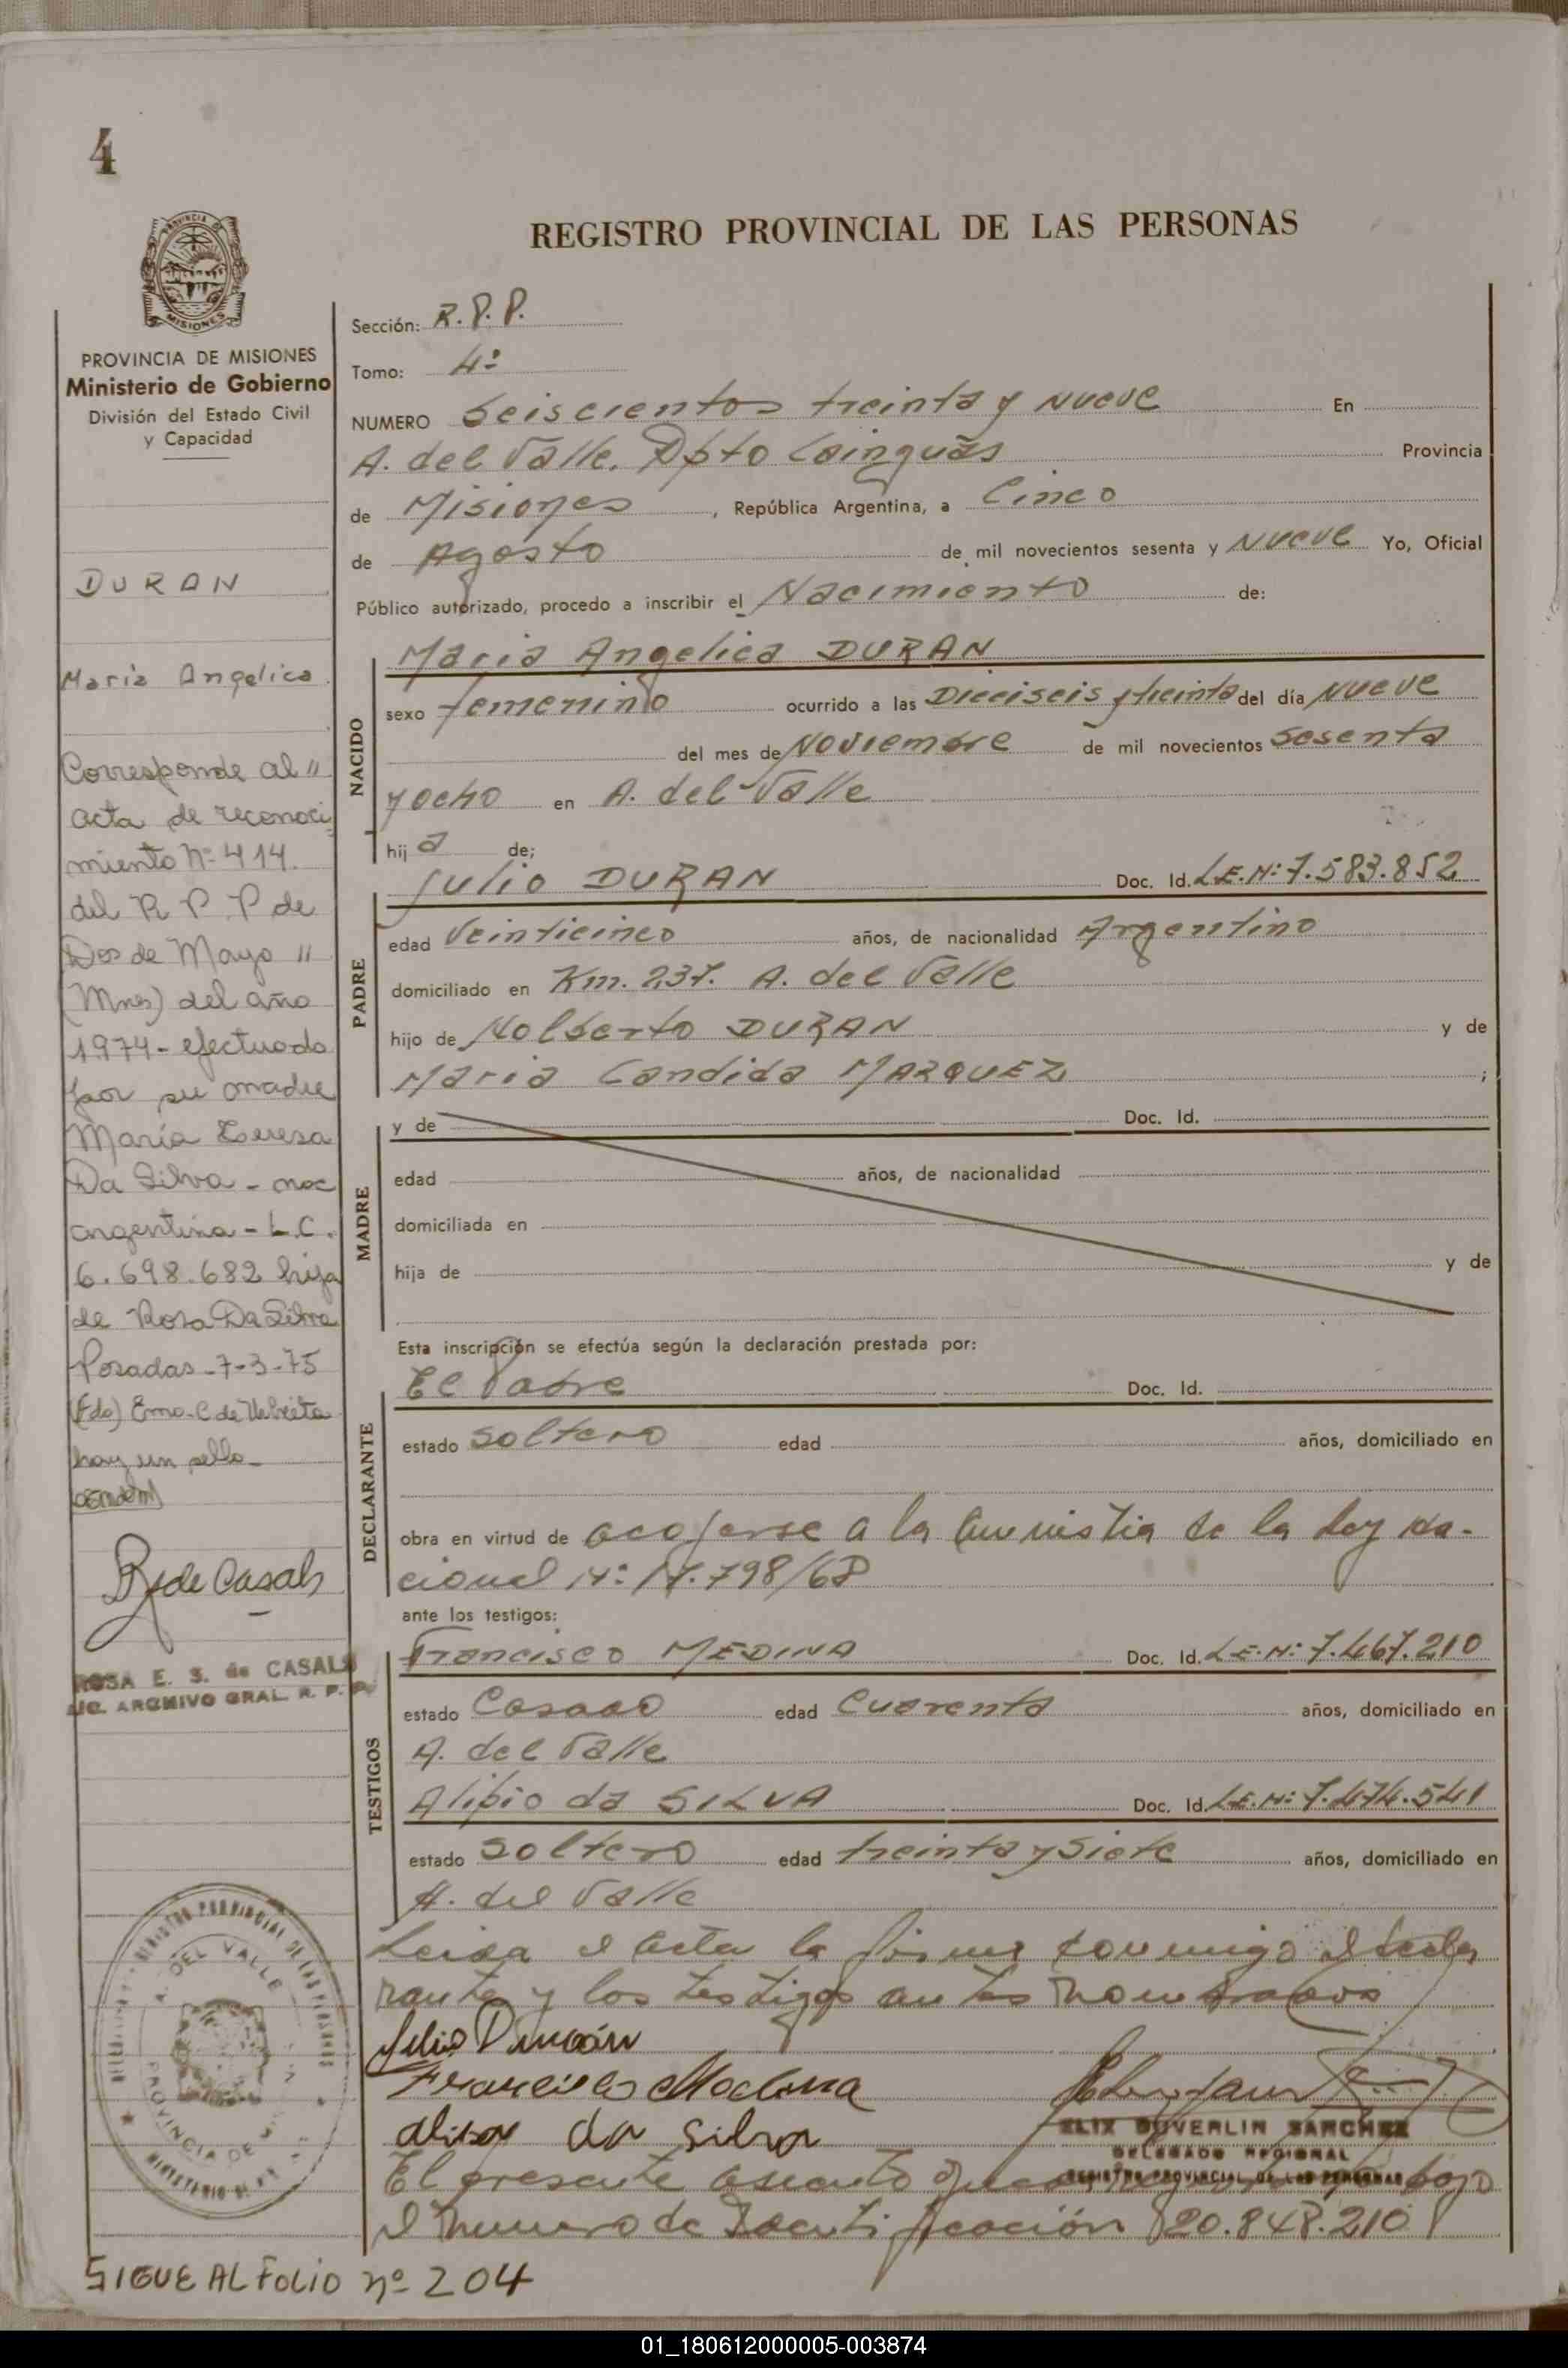 4
REGISTRO PROVINCIAL DE LAS PERSONAS
PROVINCIA DE MISIONES
Ministerio de Gobierno
División del Estado Civil
y Capacidad
DURAN
Maria Angelica
Corresponde al "
acta de reconoci
miento Nº 414.
del R P. P de
Dos de Mayo "
(Mnes) del año
1974 - efectuado
por su madre
María Teresa
Da Silva - nac
argentina - L.C.
6.698.682 hija
de Rosa Da Silva
Posadas - 7-3-75
(Fdo) Erna. C de
hay un sello -
R de Casals
ROSA E. S. de CASALS
ARCHIVO GRAL. R. P. P.
Sección: R.P.P.
Tomo: 4º
NUMERO Seiscientos treinta y nueve En
A. del Valle. Dpto Cainguás Provincia
de Misiones, República Argentina, a Cinco
de Agosto de mil novecientos sesenta y nueve Yo, Oficial
Público autorizado, procedo a inscribir el Nacimiento de:
NACIDO
Maria Angelica DURAN
sexo femenino ocurrido a las Dieciseis y treinta del día nueve
del mes de Noviembre de mil novecientos sesenta
y ocho en A. del Valle
hij a de;
PADRE
Julio DURAN Doc. Id. L.E.Nº 7.583.852
edad Veinticinco años, de nacionalidad Argentino
domiciliado en Km. 237. A. del Valle
hijo de Nolberto DURAN y de
Maria Candida MARQUEZ ;
MADRE
y de Doc. Id.
edad años, de nacionalidad
domiciliada en
hija de y de
Esta inscripción se efectúa según la declaración prestada por:
DECLARANTE
El Padre Doc. Id.
estado soltero edad años, domiciliado en
obra en virtud de acojerse a la amnistia de la Ley Na-
cional Nº 17.798/68
ante los testigos:
TESTIGOS
Francisco MEDINA Doc. Id. L.E.Nº 7.467.210
estado Casado edad Cuarenta años, domiciliado en
A. del Valle
Alipio da SILVA Doc. Id. L.E.Nº 7.474.541
estado soltero edad treinta y siete años, domiciliado en
A. del Valle
Leida el acta la firma conmigo el decla
rante y los testigos antes nombrados
Julio Duran
Francisco Medina
da Silva
SANCHEZ
DELEGADO REGIONAL
REGISTRO PROVINCIAL DE LAS PERSONAS
El presente asiento bajo
el numero de Identificación 20.848.210
A. DEL VALLE
PROVINCIA DE
SIGUE AL FOLIO nº 204
01_180612000005-003874